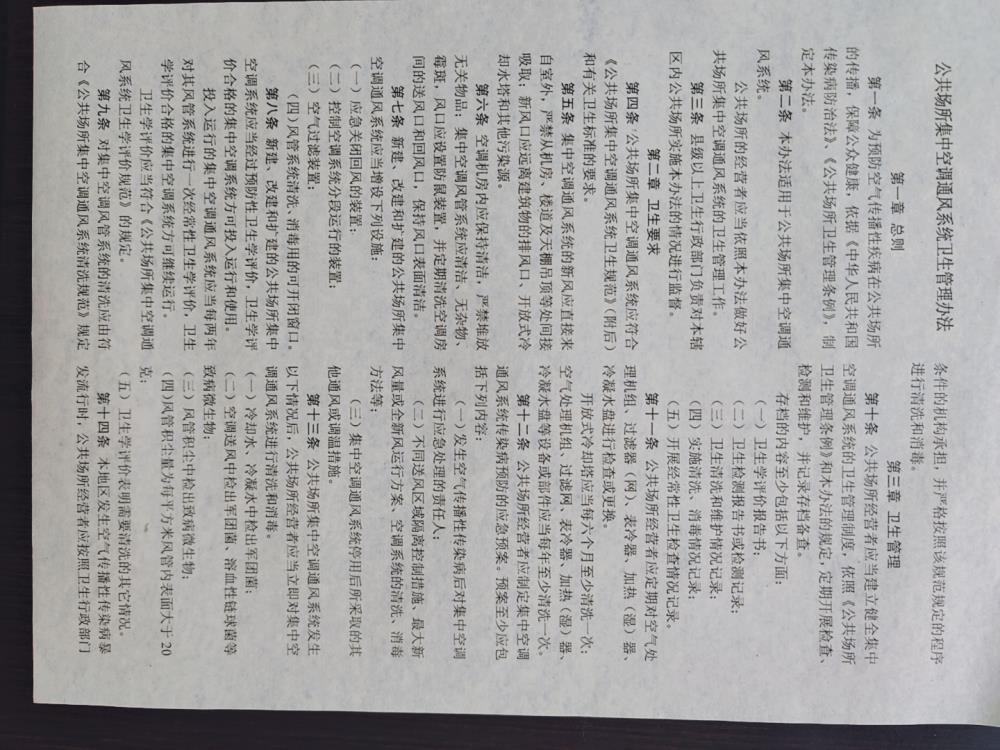 公共场所集中空调通风系统卫生管理办法
第一章 总则
第一条 为预防空气传播性疾病在公共场所
的传播，保障公众健康，依据《中华人民共和国
传染病防治法》、《公共场所卫生管理条例》，制
定本办法。
第二条 本办法适用于公共场所集中空调通
风系统。
公共场所的经营者应当依照本办法做好公
共场所集中空调通风系统的卫生管理工作。
第三条 县级以上卫生行政部门负责对本辖
区内公共场所实施本办法的情况进行监督。
第二章 卫生要求
第四条 公共场所集中空调通风系统应符合
《公共场所集中空调通风系统卫生规范》（附后）
和有关卫生标准的要求。
第五条 集中空调通风系统的新风应直接来
自室外，严禁从机房、楼道及天棚吊顶等处间接
吸取；新风口应远离建筑物的排风口、开放式冷
却水塔和其他污染源。
第六条 空调机房内应保持清洁，严禁堆放
无关物品；集中空调风管系统应清洁、无杂物、
霉斑，风口应设置防鼠装置，并定期清洗空调房
间的送风口和回风口，保持风口表面清洁。
第七条 新建、改建和扩建的公共场所集中
空调通风系统应当增设下列设施：
（一）应急关闭回风的装置；
（二）控制空调系统分段运行的装置；
（三）空气过滤装置；
（四）风管系统清洗、消毒用的可开闭窗口。
第八条 新建、改建和扩建的公共场所集中
空调系统应当经过预防性卫生学评价，卫生学评
价合格的集中空调系统方可投入运行和使用。
投入运行的集中空调通风系统应当每两年
对其风管系统进行一次经常性卫生学评价，卫生
学评价合格的集中空调系统方可继续运行。
卫生学评价应当符合《公共场所集中空调通
风系统卫生学评价规范》的规定。
第九条 对集中空调风管系统的清洗应由符
合《公共场所集中空调通风系统清洗规范》规定
条件的机构承担，并严格按照该规范规定的程序
进行清洗和消毒。
第三章 卫生管理
第十条 公共场所经营者应当建立健全集中
空调通风系统的卫生管理制度，依照《公共场所
卫生管理条例》和本办法的规定，定期开展检查、
检测和维护，并记录存档备查。
存档的内容至少包括以下方面：
（一）卫生学评价报告书；
（二）卫生检测报告书或检测记录；
（三）卫生清洗和维护情况记录；
（四）实施清洗、消毒情况记录；
（五）开展经常性卫生检查情况记录。
第十一条 公共场所经营者应定期对空气处
理机组、过滤器（网）、表冷器、加热（湿）器、
冷凝水盘进行检查或更换。
开放式冷却塔应当每六个月至少清洗一次；
空气处理机组、过滤网、表冷器、加热（湿）器、
冷凝水盘等设备或部件应当每年至少清洗一次。
第十二条 公共场所经营者应制定集中空调
通风系统传染病预防的应急预案。预案至少应包
括下列内容：
（一）发生空气传播性传染病后对集中空调
系统进行应急处理的责任人。
（二）不同送风区域隔离控制措施、最大新
风量或全新风运行方案、空调系统的清洗、消毒
方法等；
（三）集中空调通风系统停用后所采取的其
他通风或调温措施。
第十三条 公共场所集中空调通风系统发生
以下情况后，公共场所经营者应当立即对集中空
调通风系统进行清洗和消毒。
（一）冷却水、冷凝水中检出军团菌；
（二）空调送风中检出军团菌、溶血性链球菌等
致病微生物；
（三）风管积尘中检出致病微生物；
（四）风管积尘量为每平方米风管内表面大于 20
克；
（五）卫生学评价表明需要清洗的其它情况。
第十四条 本地区发生空气传播性传染病暴
发流行时，公共场所经营者应按照卫生行政部门